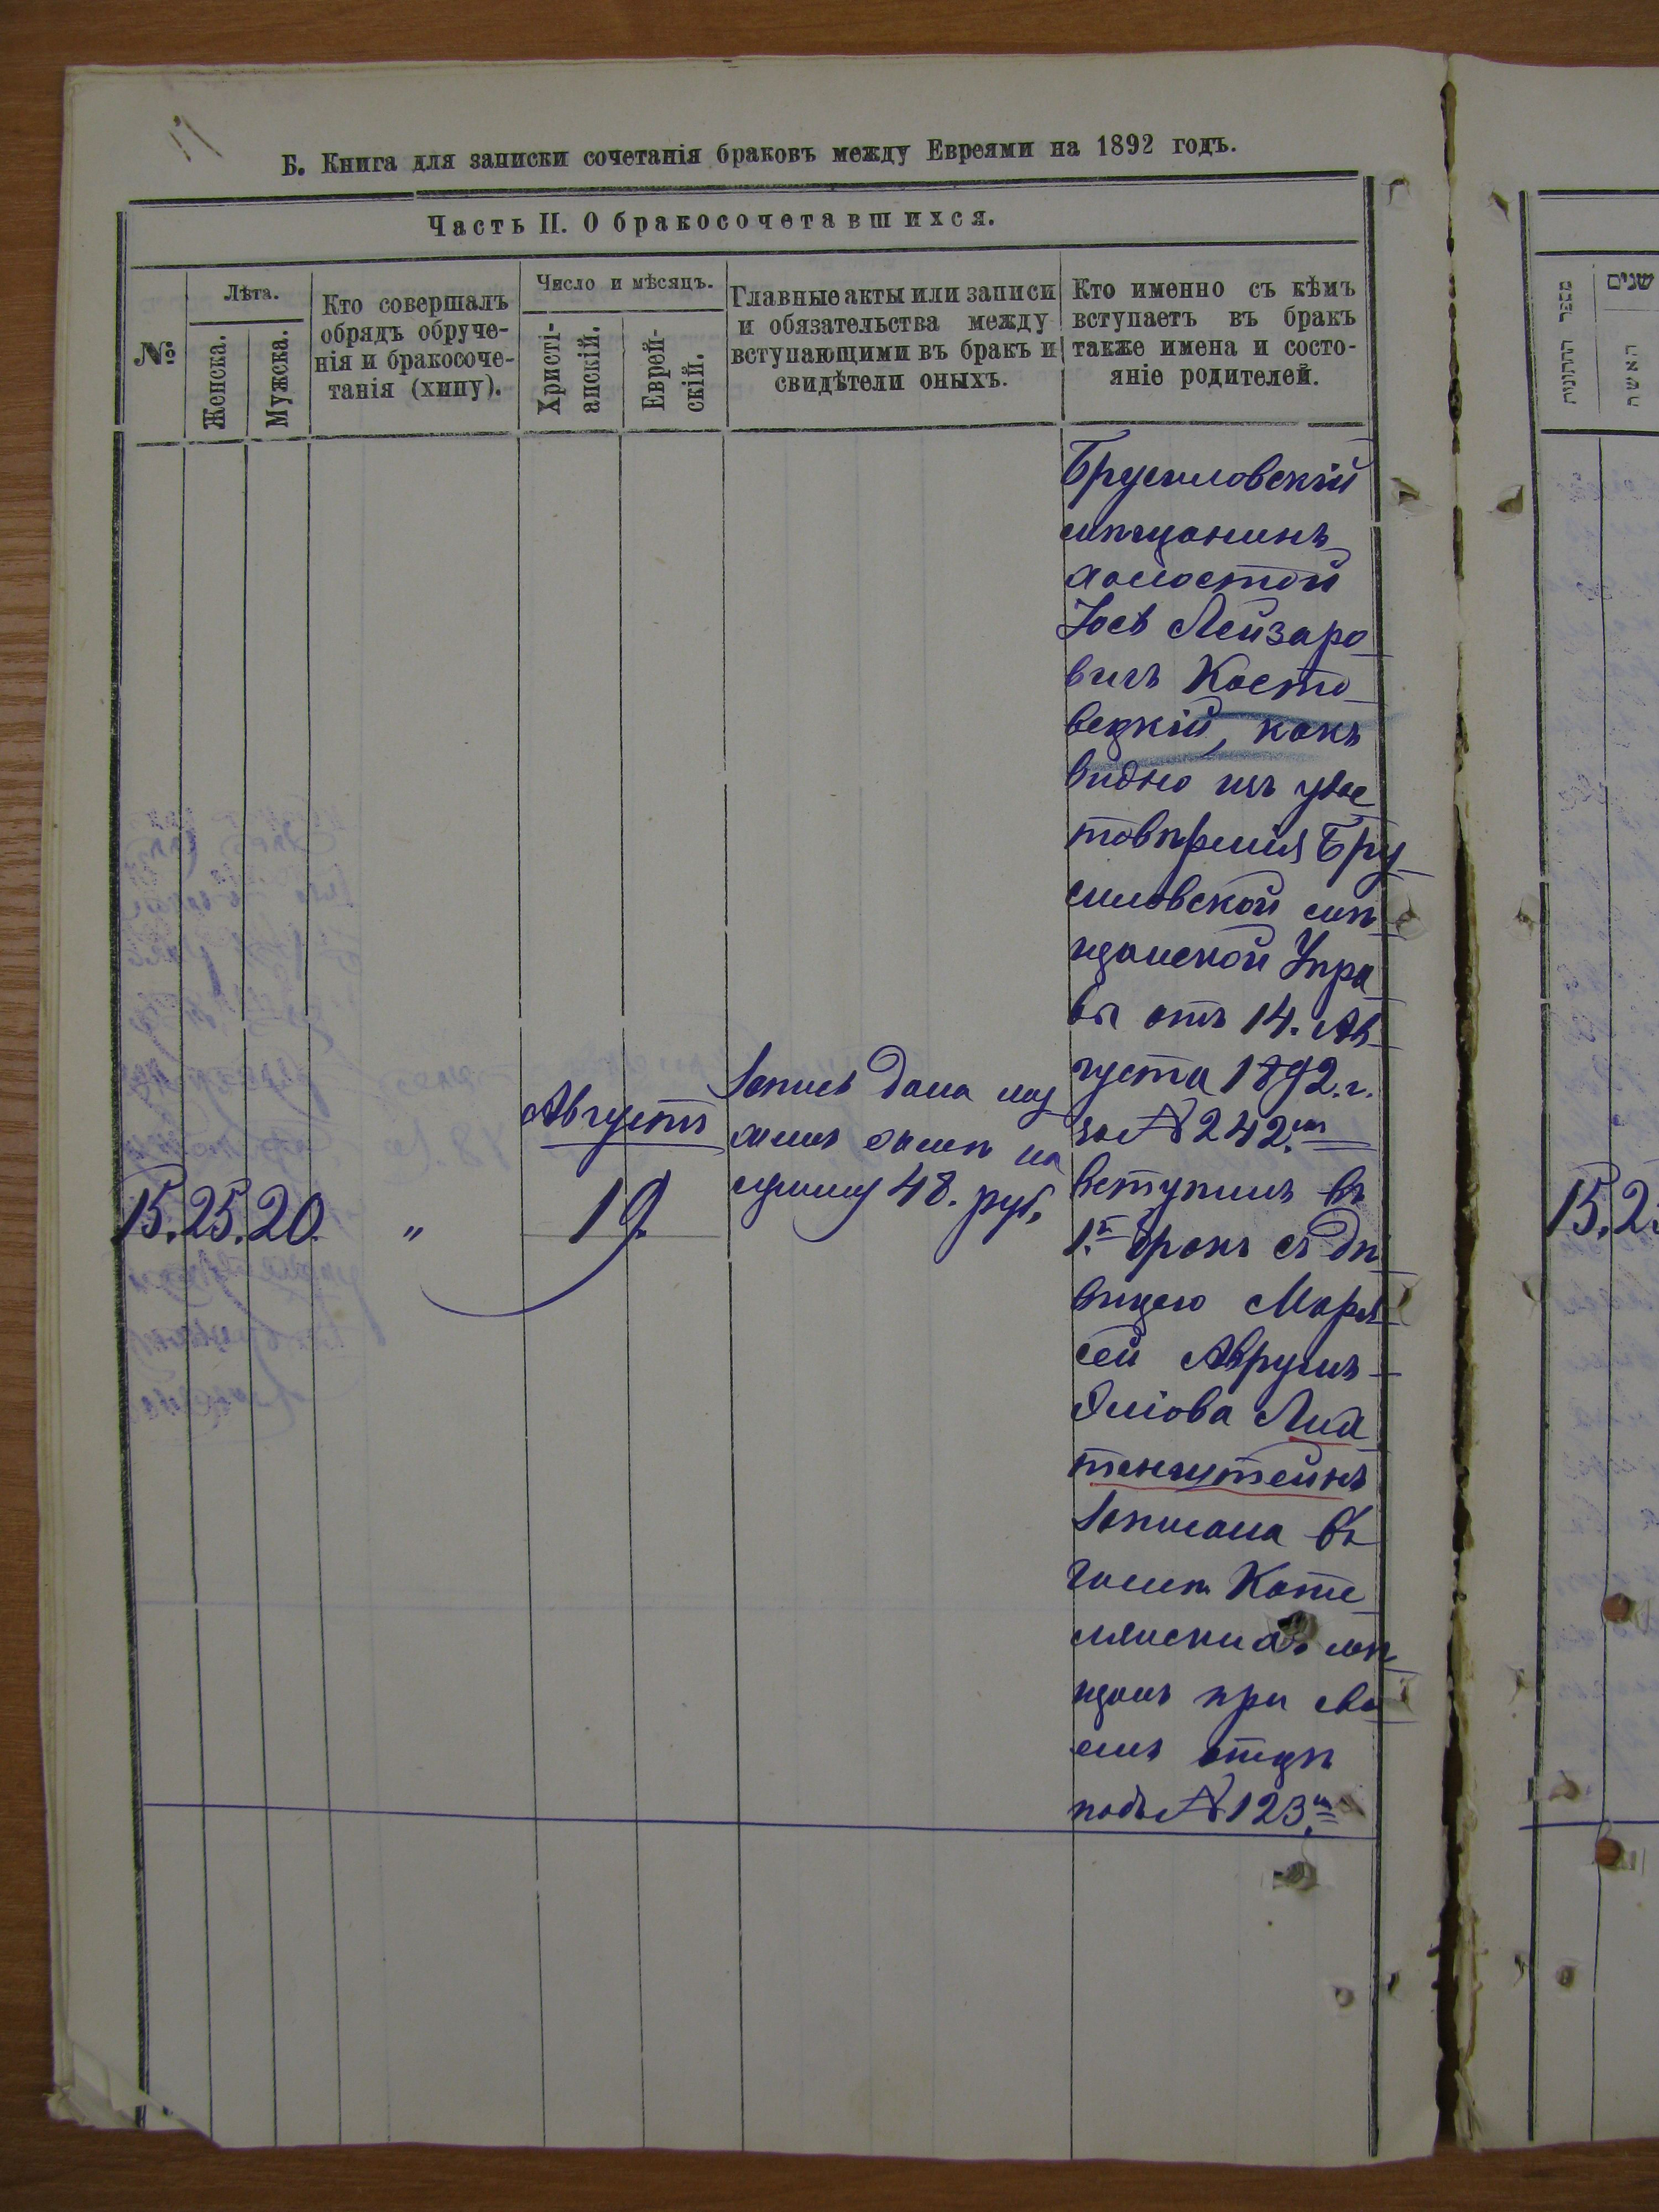 Б. Книга для записки сочетанія браковъ между Евреями на 1892 годъ.
Часть II. О бракосочетавшихся.
№:
Лѣта.
Женска.
Мужска.
Кто совершалъ
обрядъ обруче-
нія и бракосоче-
танія (хипу).
Число и мѣсяцъ.
Христі-
анскій.
Еврей-
скій.
Главные акты или записи
и обязательства между
вступающими въ бракъ и
свидѣтели оныхъ.
Кто именно съ кѣмъ
вступаетъ въ бракъ
также имена и состо-
яніе родителей.
15. 25. 20.
"
Августъ
19.
Запись дана му
жемъ женѣ на
сумму 48. руб.
Брусиловскій
мѣщанинъ
холостой
Іось Лейзаро
вичъ Косто
вецкій, какъ
видно изъ удос
товѣренія Бру
силовской мѣ
щанской Упра
вы отъ 14. Ав
густа 1892. г.
за № 242.мъ
вступилъ въ
1.й бракъ съ дѣ
вицею Маря
сей Аврумъ
Эліова Лих
тенштейнъ
Записана въ
Коте
лянскихъ мѣ
щанъ при сво
емъ отцѣ
подъ № 123.мъ
מספר
שנים
האשה
15. 2